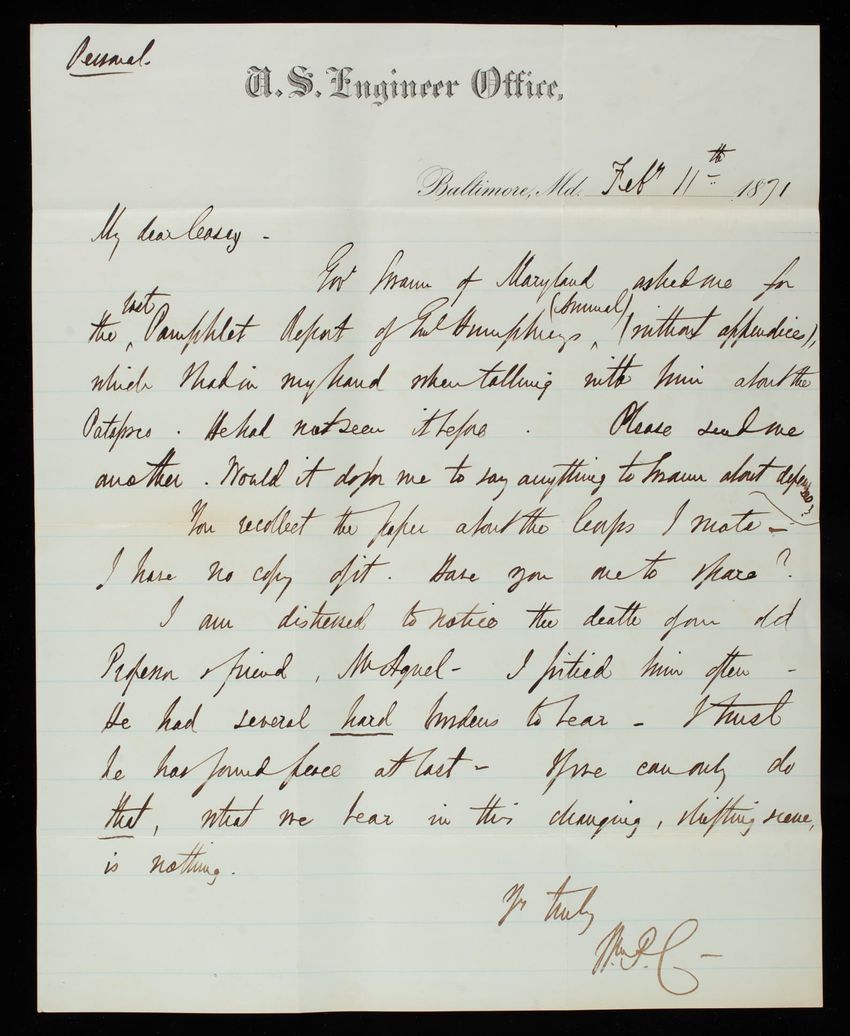 Personal.
U.S. Engineer Office,
Baltimore, Md. Feby 11th 1871
My dear Casey -
Gov Swann of Maryland asked me for
the last Pamphlet Report of Genl Humphreys, (Annual) (without appendices),
which I had in my hand when talking with him about the
Patapsco. He had not seen it before. Please send me
another. Would it do for me to say anything to Swann about defences?
You recollect the paper about the Corps I wrote -
I have no copy of it. Have you one to spare?
I am distressed to notice the death of our old
Professor & friend, Mr Agnel - I pitied him often -
He had several hard burdens to bear - I trust
he has found peace at last - If we can only do
that, what we bear in this changing, shifting scene,
is nothing.
Yr truly
Wm. P. C -